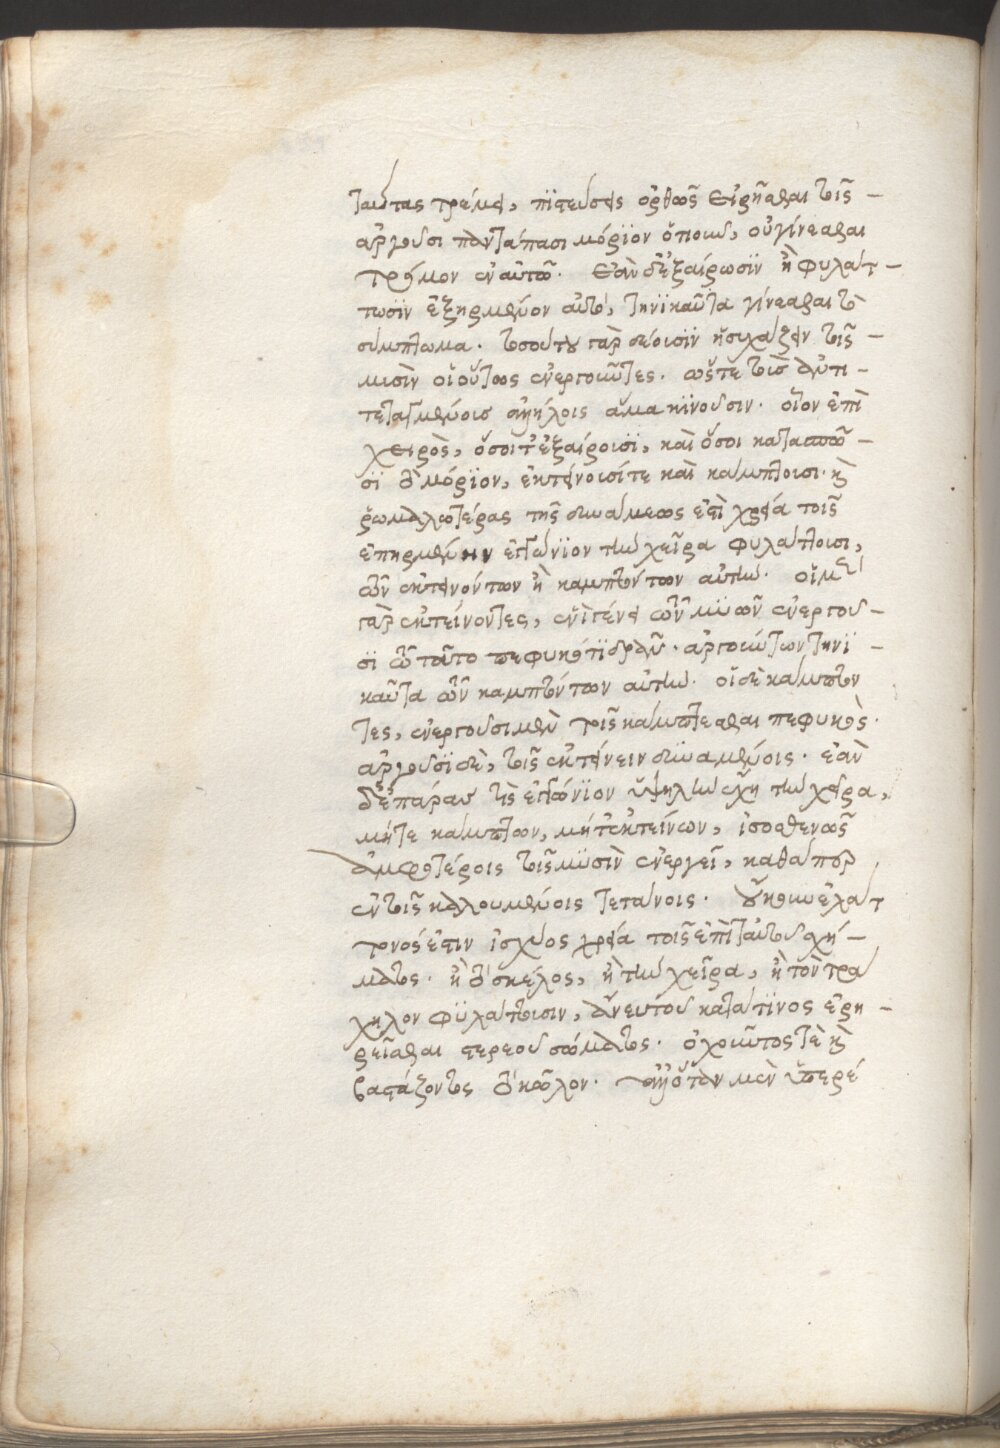 ταύτας τρέμει, πιστεύσεις ὀρθῶς εἰρῆσθαι τοῖς
ἀργοῦσι παντάπασι μόριον ὁτιοῦν, οὐ γίνεσθαι
τρόμον ἐν αὐτῷ. ἐὰν δὲ ἐξαίρωσιν ἢ φυλάτ
τωσιν ἐξηρμένον αὐτὸ, τηνικαῦτα γίνεσθαι τὸ
σύμπτωμα. τοσούτου γὰρ δέουσιν ἡσυχάζειν τοῖς
μυσὶν οἱ οὕτως ἐνεργοῦντες. ὥστε τοῖς ἀντι
τεταγμένοις ἀλλήλοις ἅμα κινοῦσιν. οἷον ἐπὶ
χειρὸς, ὅσοι τ' ἐξαίρουσι, καὶ ὅσοι κατασπῶ
σι τὸ μόριον, ἐκτείνουσί τε καὶ κάμπτουσι. καὶ
ῥωμαλεωτέρας τῆς δυνάμεως ἐστὶ χρεία τοῖς
ἐπηρμένην εὔτονον τὴν χεῖρα φυλάττουσι,
τῶν ἐκτεινόντων ἢ καμπτόντων αὐτήν. οἱ μὲν
γὰρ ἐκτείνοντες, ἑνὶ γένει τῶν μυῶν ἐνεργοῦ
σι τῶν τοῦτο πεφυκότι δρᾶν. ἀργούντων τηνι
καῦτα τῶν καμπτόντων αὐτήν. οἱ δὲ κάμπτον
τες, ἐνεργοῦσι μὲν τοῖς κάμπτεσθαι πεφυκὸς.
ἀργοῦσι δὲ, τοῖς ἐκτείνειν δυναμένοις. ἐὰν
δὲ ἐπάρας τις εὔτονον ὑψηλὴν ἔχῃ τὴν χεῖρα,
μήτε κάμπτων, μήτ' ἐκτείνων, ἰσοσθενῶς
ἀμφοτέροις τοῖς μυσὶν ἐνεργεῖ, καθάπερ
ἐν τοῖς καλουμένοις τετάνοις. οὔκουν ἐλάτ
τονός ἐστιν ἰσχύος χρεία τοῖς ἐπὶ ταὐτοῦ σχή
ματος. ἢ τὸ σκέλος, ἢ τὴν χεῖρα, ἢ τὸν τρά
χηλον φυλάττουσιν, ἄνευ τοῦ κατά τινος ἐρη
ρεῖσθαι στερεοῦ σώματος. ὀχοῦντος τὲ καὶ
βαστάζοντος τὸ κῶλον. ἀλλ' ὅταν μὲν ὑπερέ